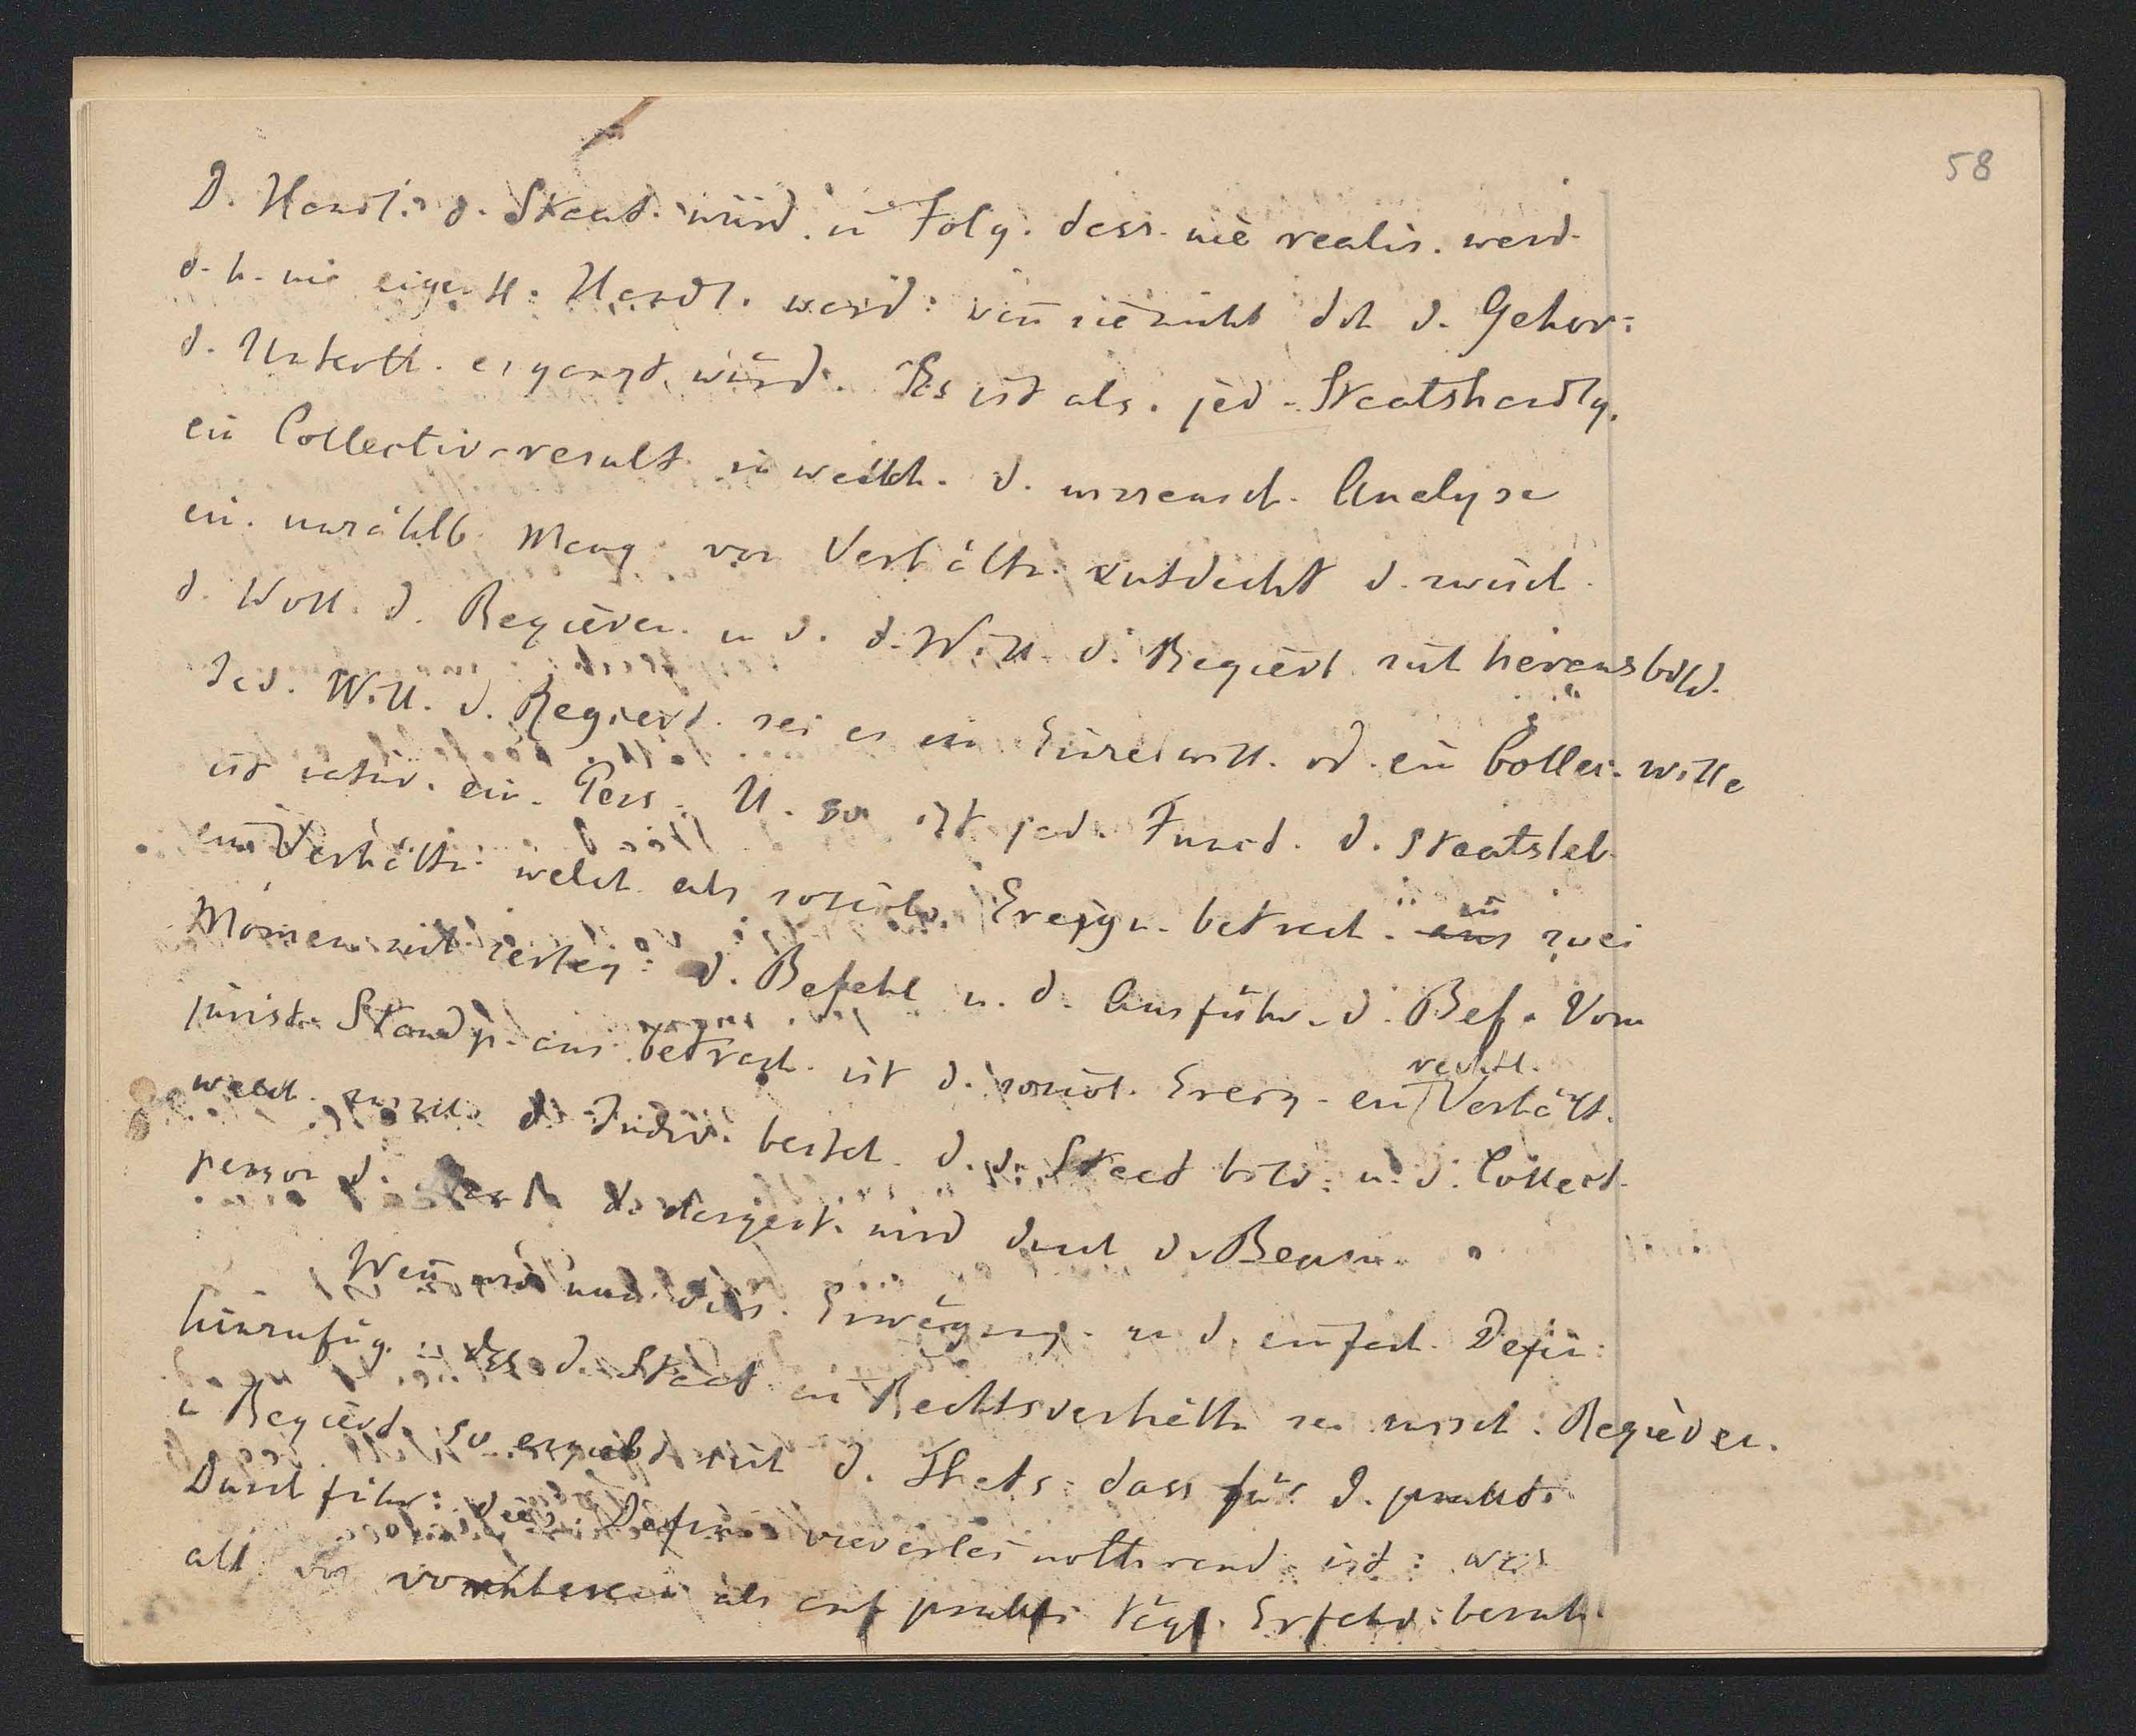 58
D. Handl. d. Staat. würd. in Folg. dess. nie realis. werd.
d. h. nie eigentl. Handl. werd: wen̄ sie nicht dch d. Gehor:
d. Unterth. ergänzt würd. Es ist als. jed. Staatshandlg.
ein Collectiv-result in welch. d. wissensch. Analyse
ein. unzählb. Meng. von Verhältn. entdeckt d. zwisch.
d. Woll. d. Regieren. u d. d. Will. d. Regiert. sich herausbild.
Jed. Will. d. Regiert. sei es ein Einzelwill. od. ein Collec. wille
ist natür. ein. Pers. U. so ist jed. Funct. d. Staatsleb.
ein Verhältn. welch. als social. Ereign. betracht. aus in zwei
Momen. sich zerleg: d. Befehl u. d. Ausführ. d. Bef. Vom
jurist. Standp. aus betrach. ist d. social. Ereig. ein rechtl. Verhält.
welch. zwisch. d. Indiv. besteh. d. d. Staat bild. u. d. Collect.
person d. dargest. wird durch d. Beam.
Wen̄ wir nun dies. Erwägung. zu d. einfach. Defin:
hinzufüg. dss d. Staat ein Rechtsverhältn. sei zwisch. Regieren.
u Regiert. so ergiebt sich d. Thats. dass für d. prakt.
Durchführ: dies. Defin. vielerlei nothwend. ist: was
all von vornherein als auf prakt. tägl. Erfahr. beruh.